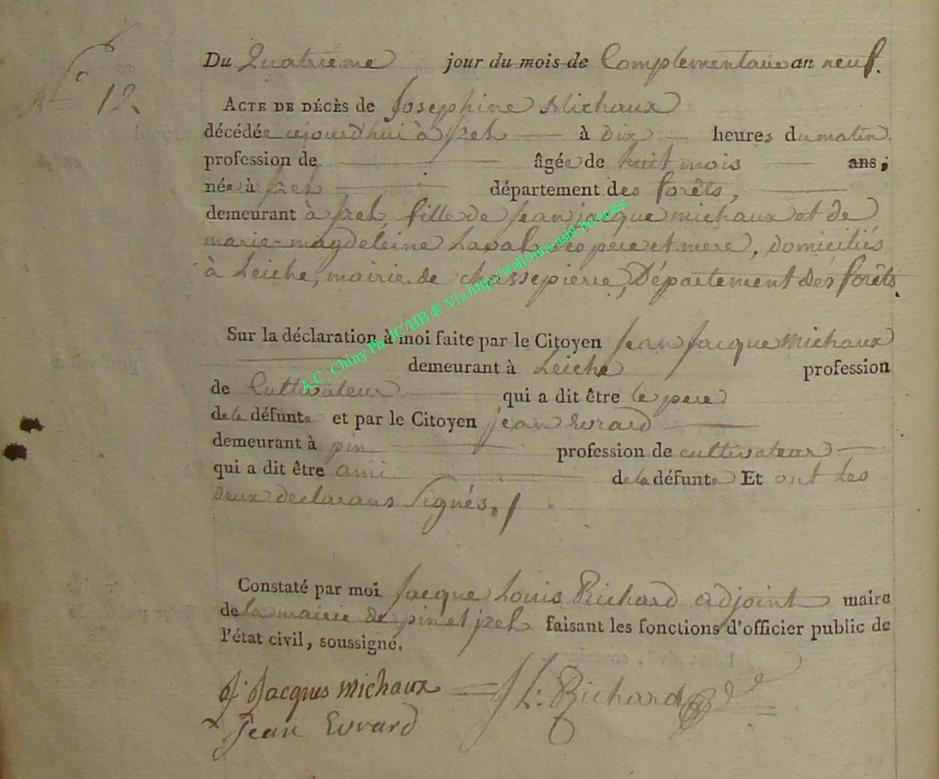 N.° 12
Du Quatrième jour du mois de Complementaire an neuf.
ACTE DE DÉCÈS de Josephine Michaux
décédée cejourd'hui à jzel à Dix heures du matin
profession de âgée de huit mois ans ;
née à jzel département des forêts,
demeurant à jzel fille de jean jacque michaux et de
marie-magdeleine Laval, ses pere et mere, Domiciliés
à Leiche, mairie de chassepierre, Département des forêts.
Sur la déclaration à moi faite par le Citoyen jean jacque Michaux
demeurant à Leiche profession
de Cultivateur qui a dit être le pere
de la défunte et par le Citoyen jean Evrard
demeurant à pin profession de cultivateur
qui a dit être ami de la défunte Et ont les
deux declarans signés.
Constaté par moi jacque Louis Richard adjoint maire
de la mairie de pin et jzel faisant les fonctions d'officier public de
l'état civil, soussigné.
J. Jacques Michaux J L. Richard
Jean Evrard
A.C. Chiny Ph JC/HB ® Via http/wallonia-asbl-be/actes